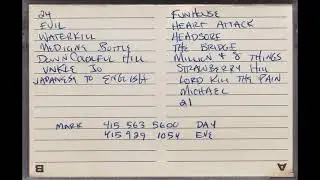 24
EVIL
WATERKILL
MEDICINE BOTTLE
DOWN COLORFUL HILL
UNKLE JO
JAPANESE TO ENGLISH
FUNHOUSE
HEART ATTACK
HEADSORE
THE BRIDGE
MILLION & 8 THINGS
STRAWBERRY HILL
LORD KILL THE PAIN
MICHAEL
21
MARK 415 563 5600 DAY
415 929 1054 EVE
B
A